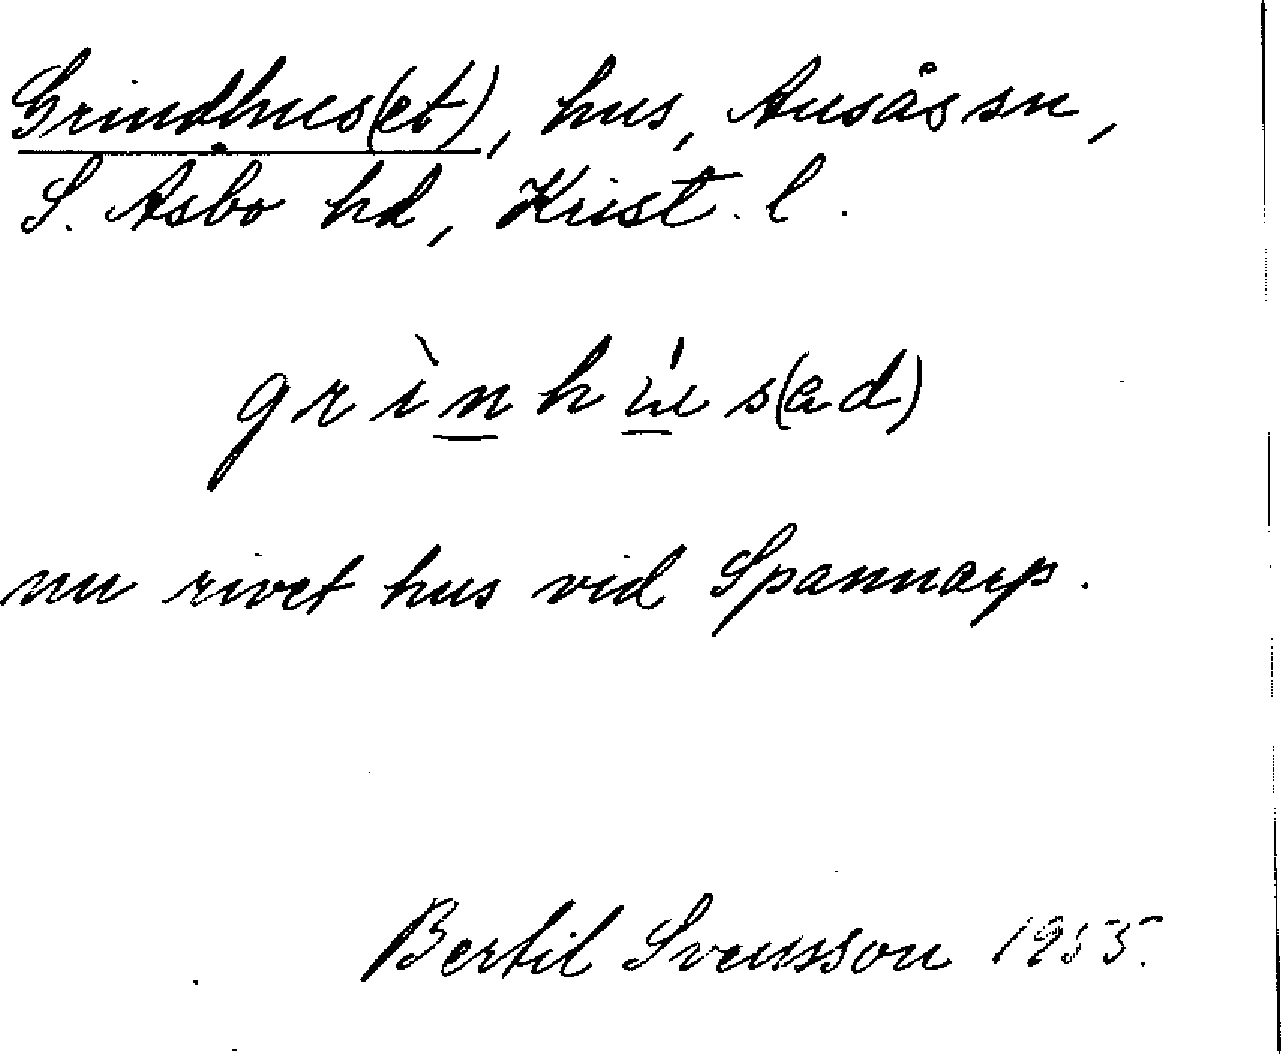 Grindhus(et), hus, Ausås sn,
S. Åsbo hd, Krist. l.
grìnhús(ad)
nu rivet hus vid Spannarp.
Bertil Svensson 1955.